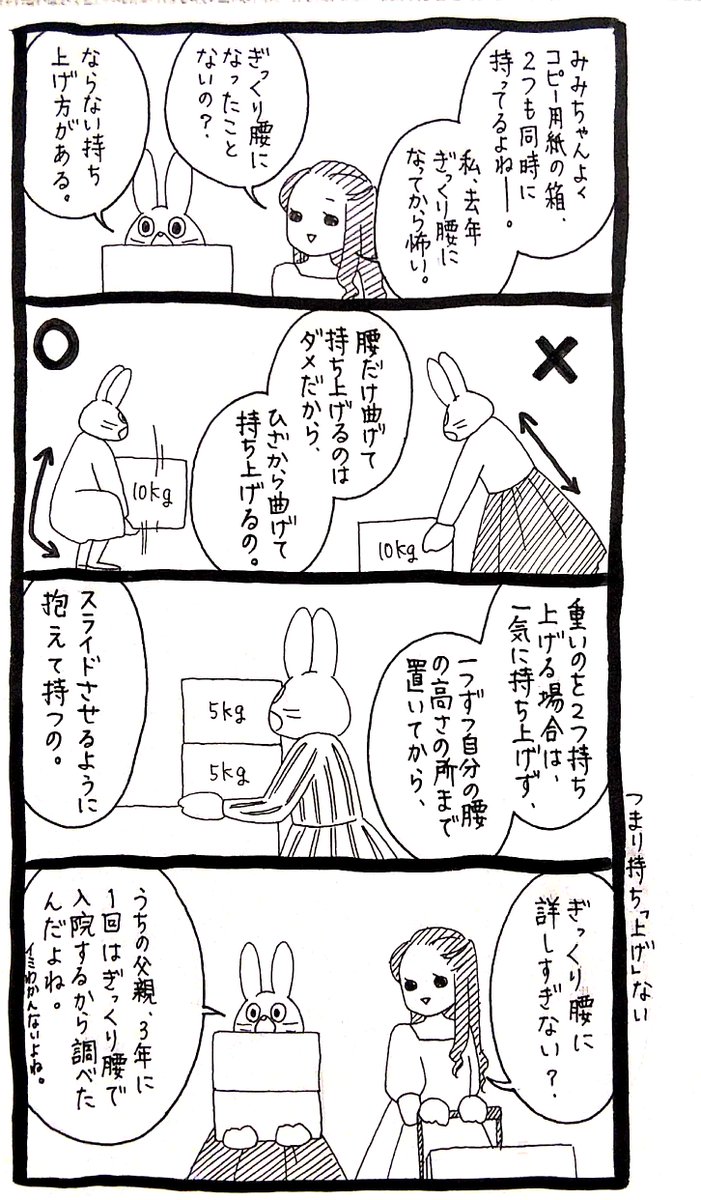 みみちゃんよく
コピー用紙の箱、
2つも同時に
持ってるよねー。
私、去年
ぎっくり腰に
なってから怖い。
ぎっくり腰に
なったこと
ないの？
ならない持ち
上げ方がある。
腰だけ曲げて
持ち上げるのは
ダメだから、
ひざから曲げて
持ち上げるの。
10kg
10kg
重いのを2つ持ち
上げる場合は、
一気に持ち上げず、
一つずつ自分の腰
の高さの所まで
置いてから、
スライドさせるように
抱えて持つの。
5kg
5kg
つまり持ち「上げ」ない
ぎっくり腰に
詳しすぎない？
うちの父親、3年に
1回はぎっくり腰で
入院するから調べた
んだよね。
イミわかんないよね。